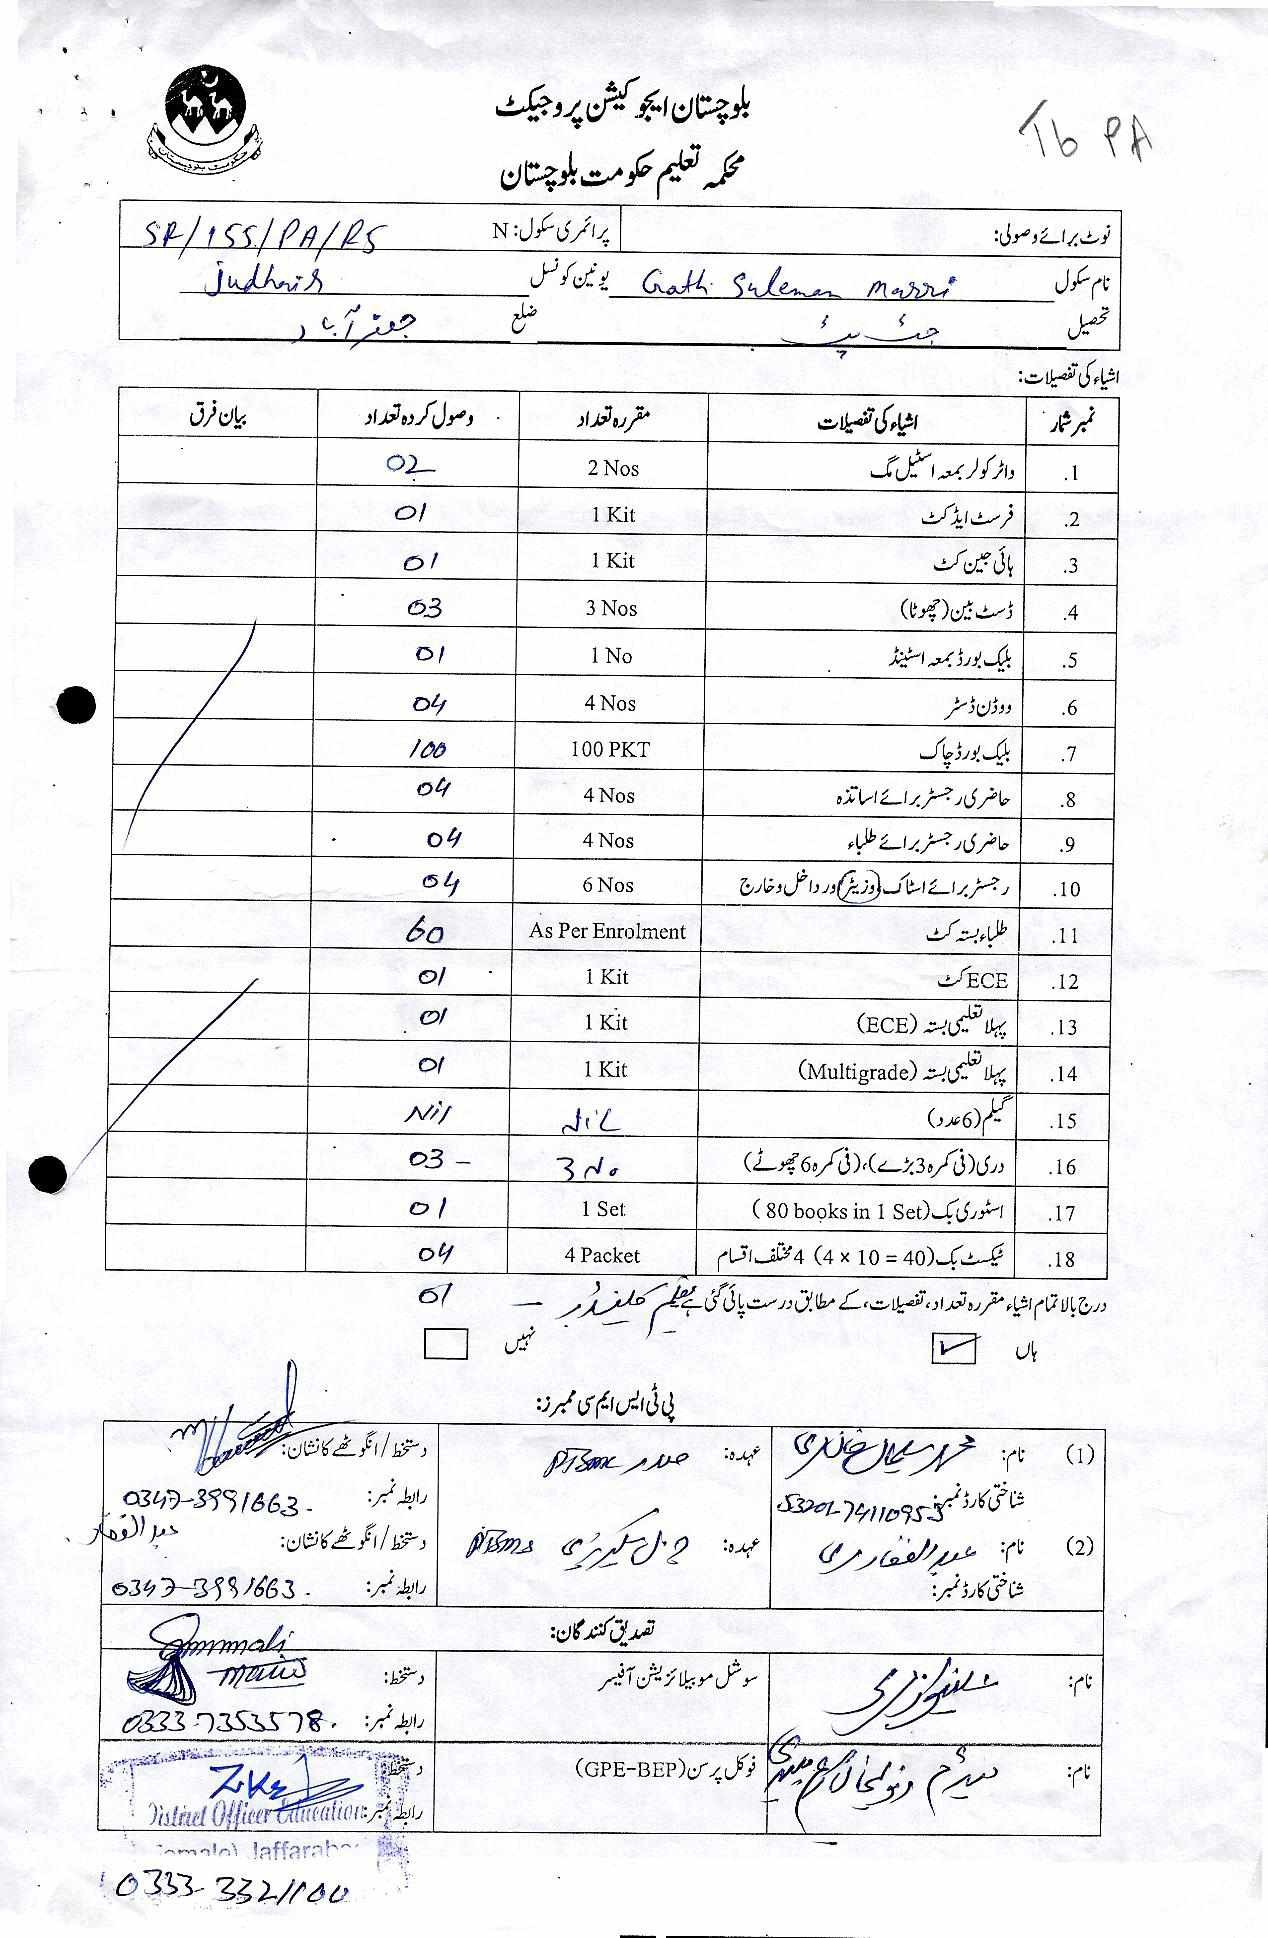 بلوچستان ایجوکیشن پروجیکٹ
Tb PA
محکمہ تعلیم حکومت بلوچستان
حکومت بلوچستان
نوٹ برائے وصولی: پرائمری سکول: N SR/155/PA/RS
نام سکول Goth Suleman Marri یونین کونسل Judhair
تحصیل جھٹ پٹ ضلع جعفر آباد
اشیاء کی تفصیلات:
نمبر شمار اشیاء کی تفصیلات مقررہ تعداد وصول کردہ تعداد بیان فرق
1. واٹر کولر بمعہ اسٹیل مگ 2 Nos 02
2. فرسٹ ایڈ کٹ 1 Kit 01
3. ہائی جین کٹ 1 Kit 01
4. ڈسٹ بین (چھوٹا) 3 Nos 03
5. بلیک بورڈ بمعہ اسٹینڈ 1 No 01
6. ووڈن ڈسٹر 4 Nos 04
7. بلیک بورڈ چاک 100 PKT 100
8. حاضری رجسٹر برائے اساتذہ 4 Nos 04
9. حاضری رجسٹر برائے طلباء 4 Nos 04
10. رجسٹر برائے اسٹاک (وزیٹر) ور داخل و خارج 6 Nos 04
11. طلباء بستہ کٹ As Per Enrolment 60
12. ECE کٹ 1 Kit 01
13. پہلا تعلیمی بستہ (ECE) 1 Kit 01
14. پہلا تعلیمی بستہ (Multigrade) 1 Kit 01
15. گیلم (6 عدد) Nil Nil
16. دری (فی کمرہ 3 بڑے)، (فی کمرہ 6 چھوٹے) 3 No 03 -
17. اسٹوری بک (80 books in 1 Set) 1 Set 01
18. ٹیکسٹ بک (4 × 10 = 40) 4 مختلف اقسام 4 Packet 04
درج بالا تمام اشیاء مقررہ تعداد، تفصیلات، کے مطابق درست پائی گئی ہے تعلیم کلینڈر – 01
ہاں ✓ نہیں
پی ٹی ایس ایم سی ممبرز:
(1) نام: محمد سلیمان خان مری عہدہ: صدر PTSMC دستخط / انگوٹھے کا نشان:
شناختی کارڈ نمبر: 53201-7411095-3 رابطہ نمبر: 0347-3991663.
(2) نام: عبدالغفار مری عہدہ: جنرل سیکریٹری PTSMC دستخط / انگوٹھے کا نشان: عبدالغفار
شناختی کارڈ نمبر: رابطہ نمبر: 0347-3991663.
تصدیق کنندگان:
نام: سوشل موبیلائزیشن آفیسر دستخط:
رابطہ نمبر: 0333-7353578.
نام: فوکل پرسن (GPE-BEP) دستخط:
رابطہ نمبر:
District Officer Education
(Female) Jaffarabad
0333-3321100